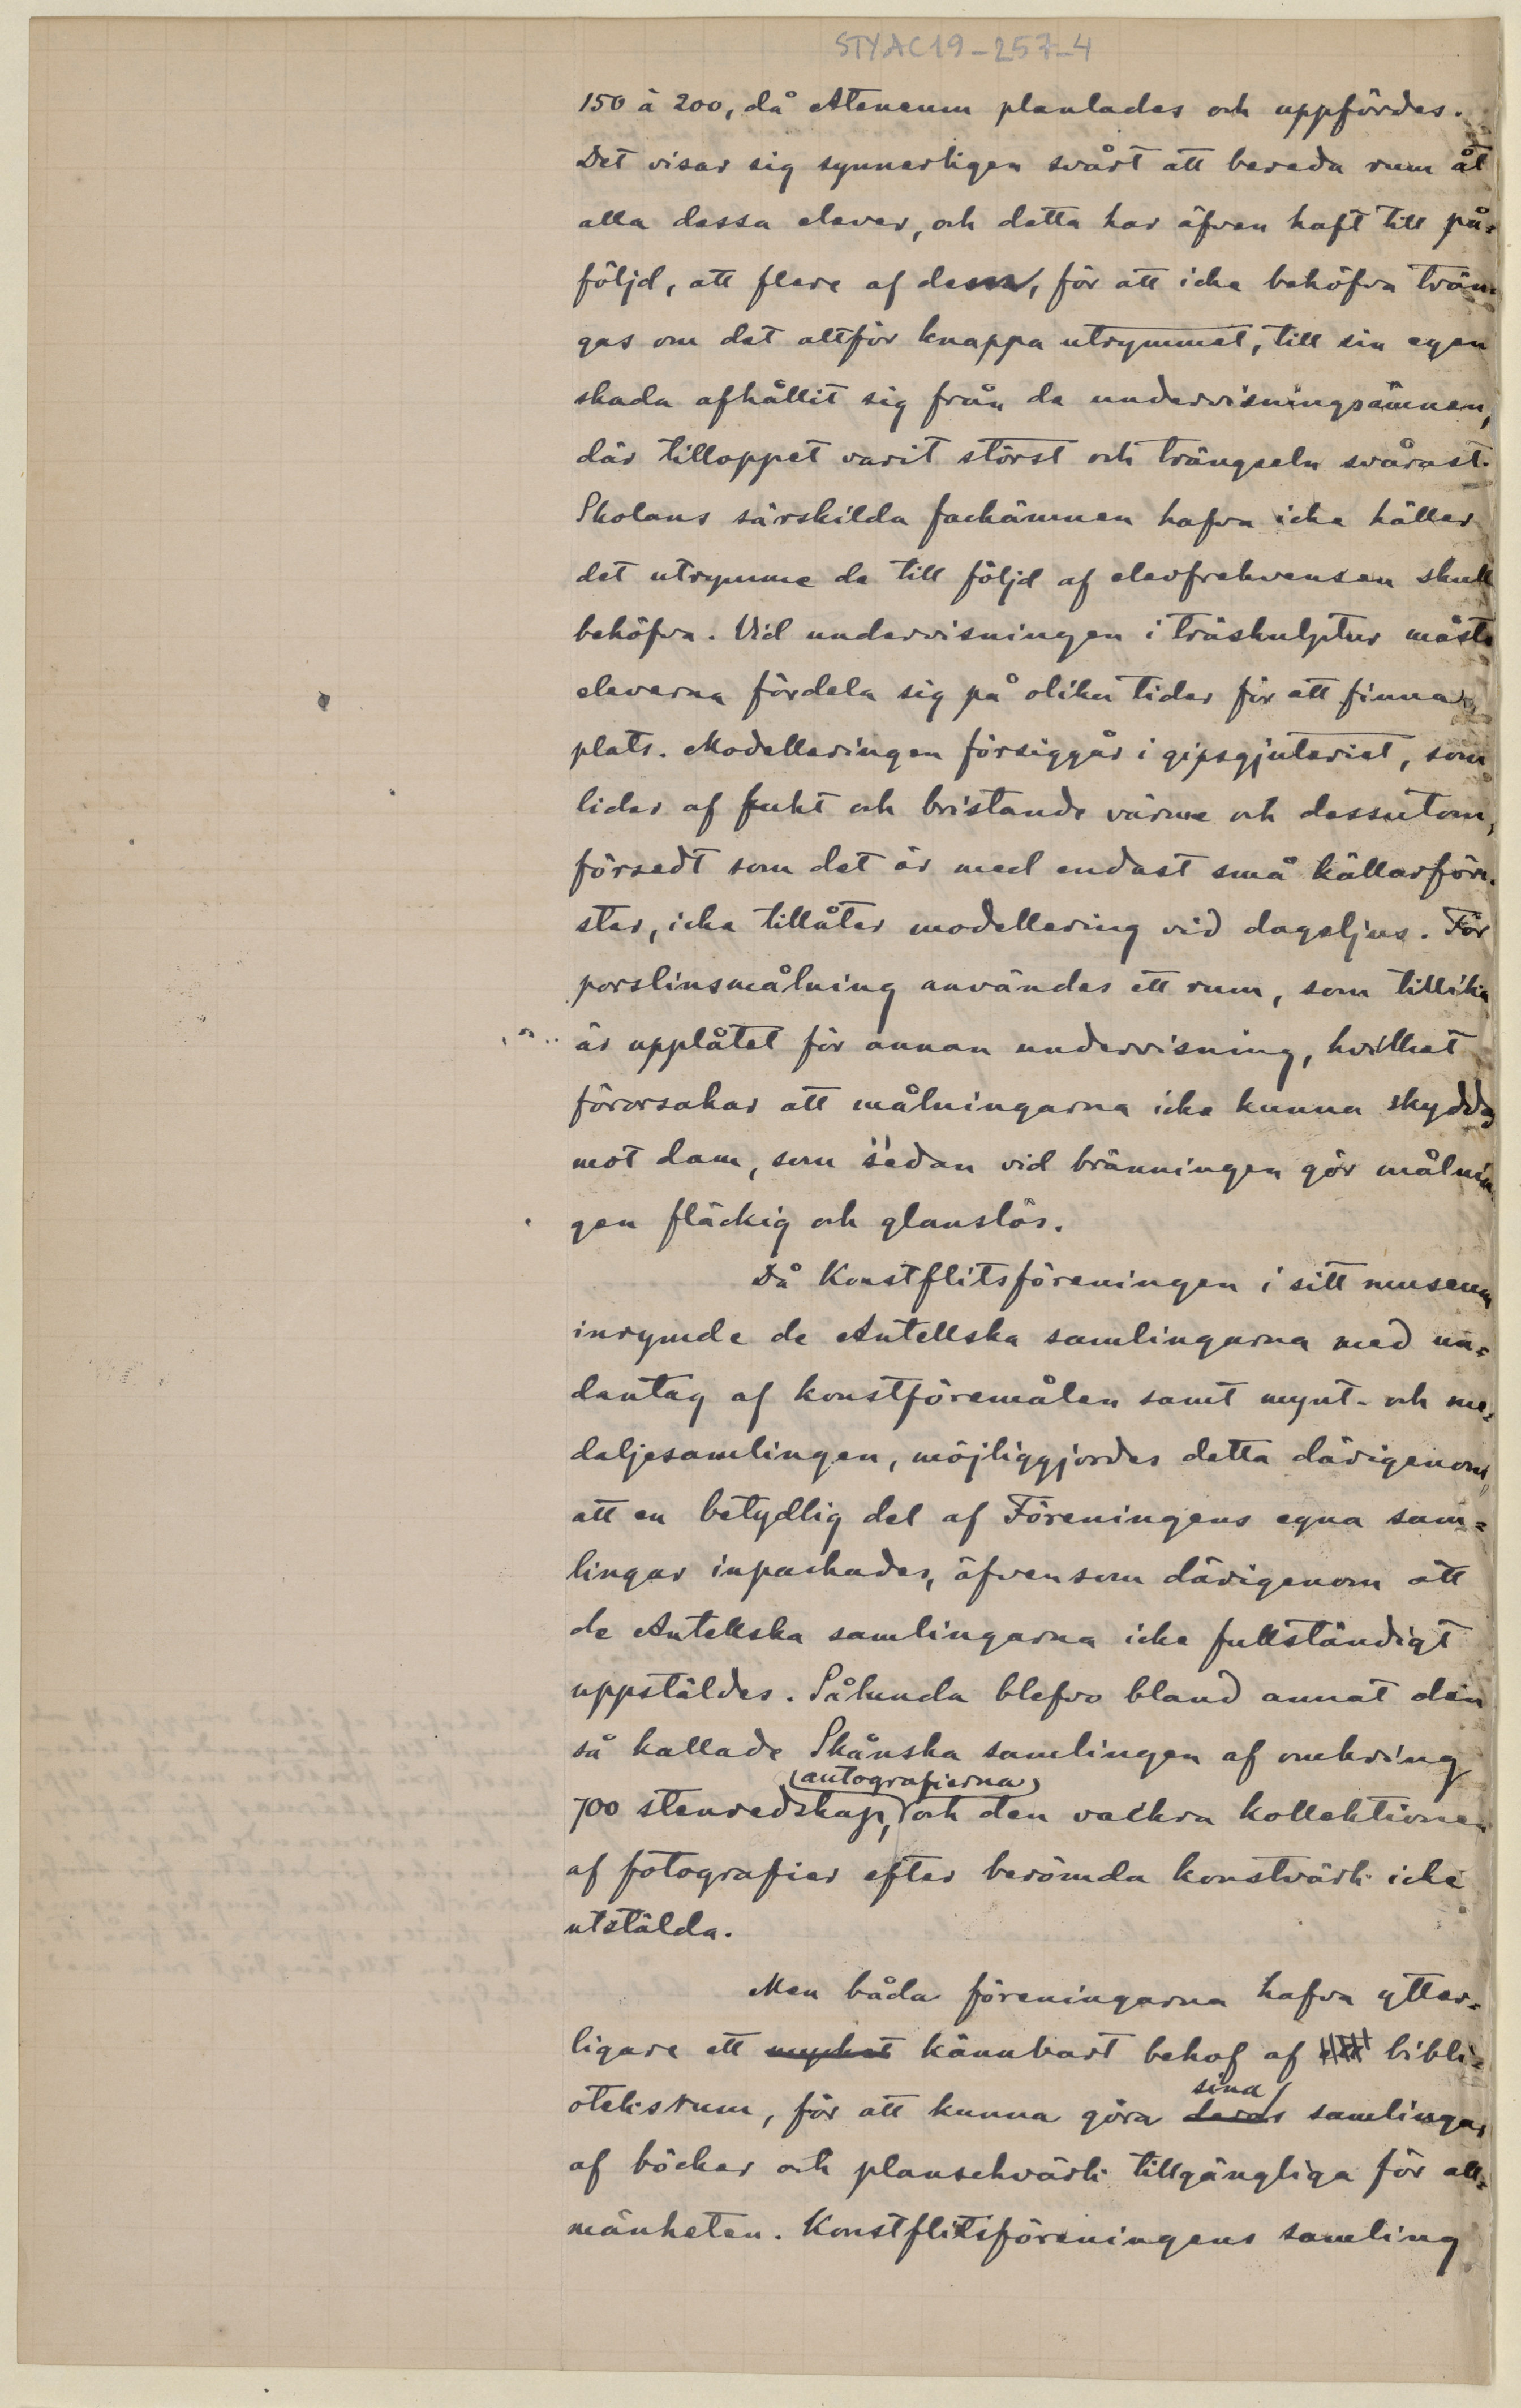 STYAC19-257-4
150 à 200, då Ateneum planlades och uppfördes.
Det visar sig synnerligen svårt att bereda rum åt
alla dessa elever, och detta har äfven haft till på-
följd, att flere af dem, för att icke behöfva trän-
gas om det alltför knappa utrymmet, till sin egen
skada afhållit sig från de undervisningsämnen,
där tilloppet varit störst och trängseln svårast.
Skolans särskilda fackämnen hafva icke håller
det utrymme de till följd af elevfrekvensen skulle
behöfva. Vid undervisningen i träskulptur måste
eleverna fördela sig på olika tider för att finna
plats. Modelleringen försiggår i gipsgjuteriet, som
lider af fukt och bristande värme och dessutom,
försedt som det är med endast små källarfön-
ster, icke tillåter modellering vid dagsljus. För
porslinsmålning användes ett rum, som tillika
är upplåtet för annan undervisning, hvilket
förorsakar att målningarna icke kunna skyddas
mot dam, som sedan vid bränningen gör målnin-
gen fläckig och glanslös.
Då Konstflitsföreningen i sitt museum
inrymde de Antellska samlingarna med un-
dantag af konstföremålen samt mynt- och me-
daljesamlingen, möjliggjordes detta därigenom,
att en betydlig del af Föreningens egna sam-
lingar inpackades, äfvensom därigenom att
de Antellska samlingarna icke fullständigt
uppstäldes. Sålunda blefvo bland annat den
så kallade Skånska samlingen af omkring
(autografierna)
700 stenredskap, och den vackra kollektionen
af fotografier efter berömda konstvärk icke
utstälda.
Men båda föreningarna hafva ytter-
ligare ett mycket kännbart behof af ett bibli-
sina
oteksrum, för att kunna göra deras samlingar
af böcker och planschvärk tillgängliga för all-
mänheten. Konstflitsföreningens samling